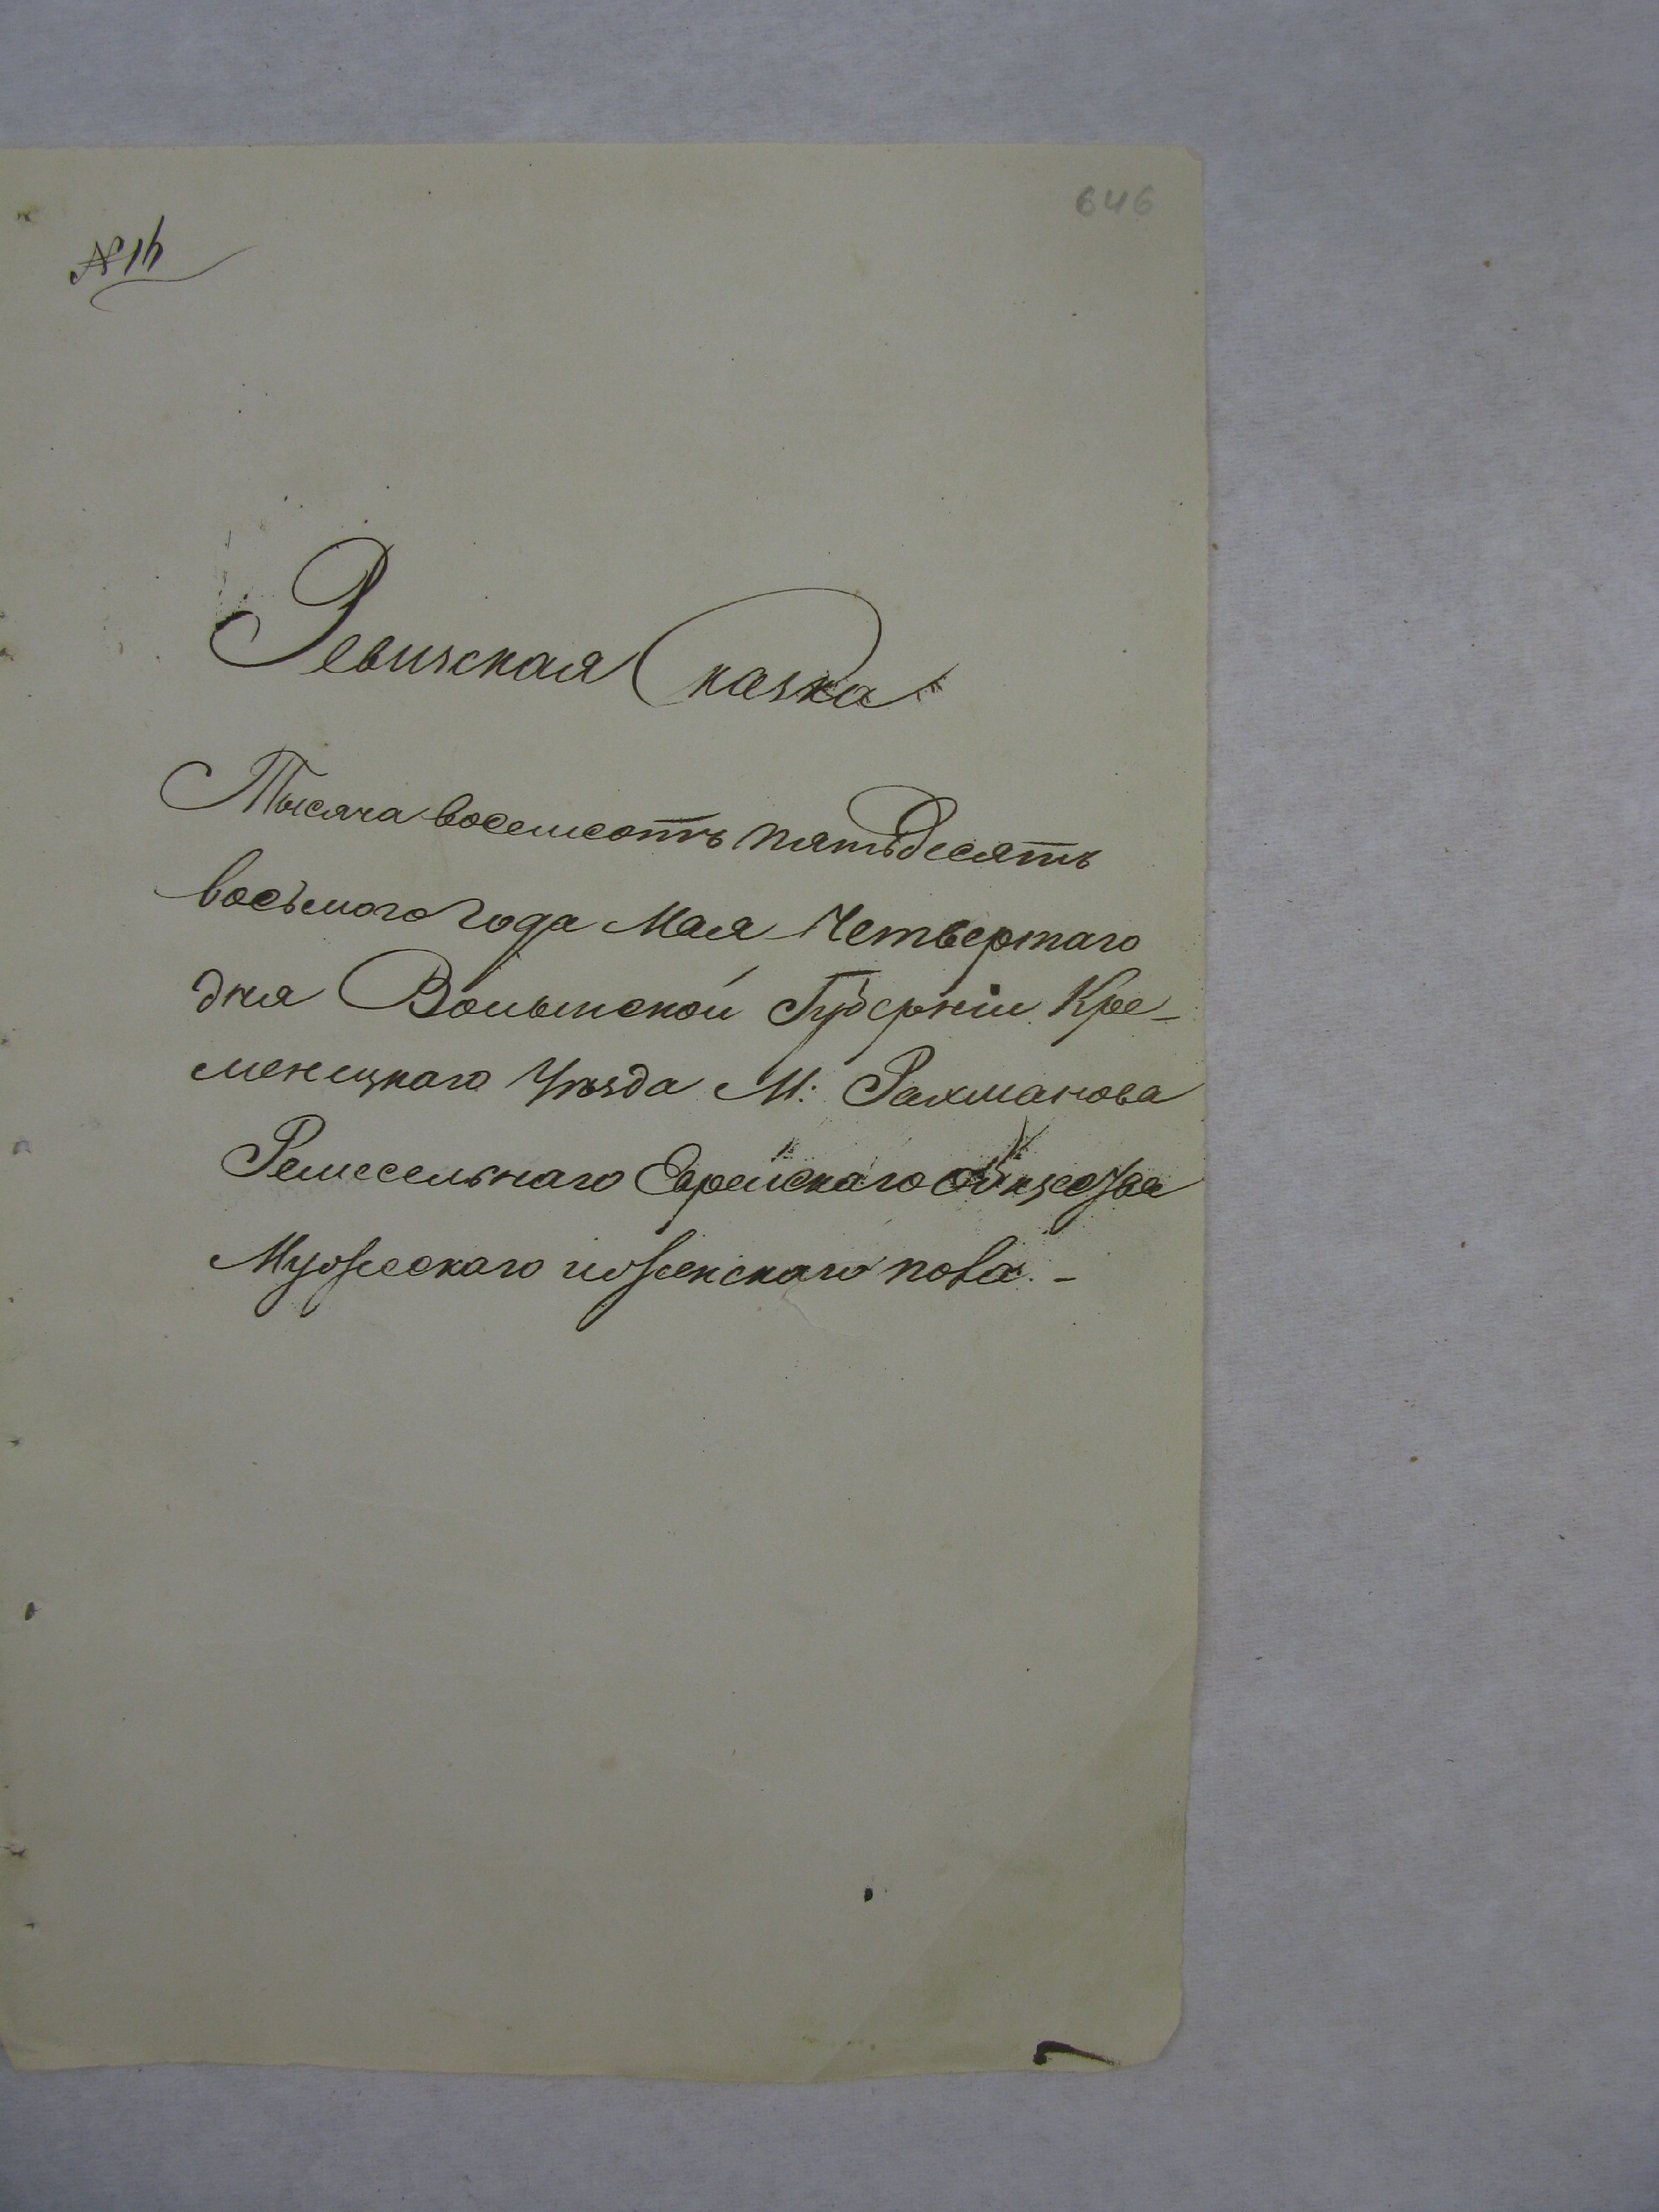 646
№ 16
Ревизская Сказка
Тысяча восемсотъ пятьдесятъ
восьмого года Мая Четвертаго
дня Волынской Губерніи Кре-
менецкаго Уѣзда М: Рахманова
Ремесельнаго Еврейскаго общества
Мужескаго и женскаго пола. -